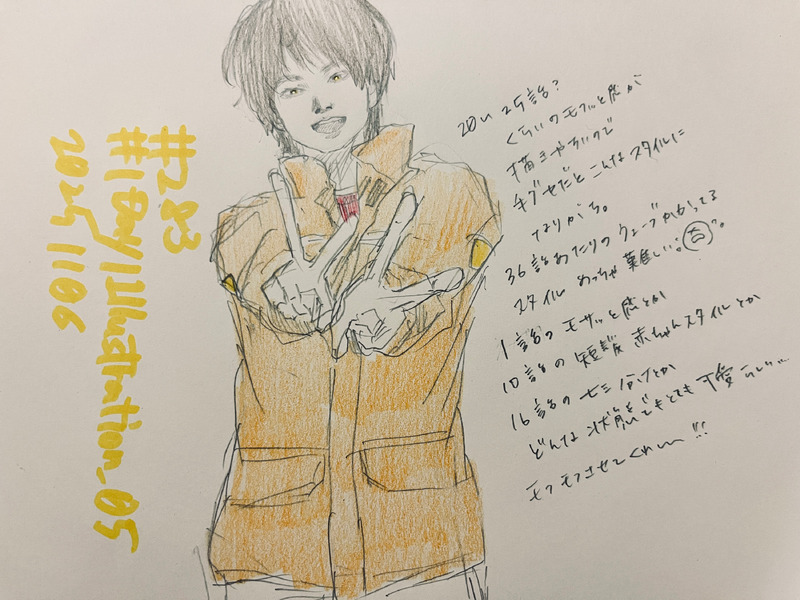 #283
#1Day1Illustration_05
20251106
20い25話?
くらいのモフッと感が
描きやすいので
手グセだとこんなスタイルに
なりがち。
36話あたりのウェーブかかってる
スタイル めっちゃ難しい。
1話のモサッと感とか
10話の短髪赤ちゃんスタイルとか
16話の七三分けとか
どんな状態でもとても可愛らしい…
モフモフさせてくれ〜!!!